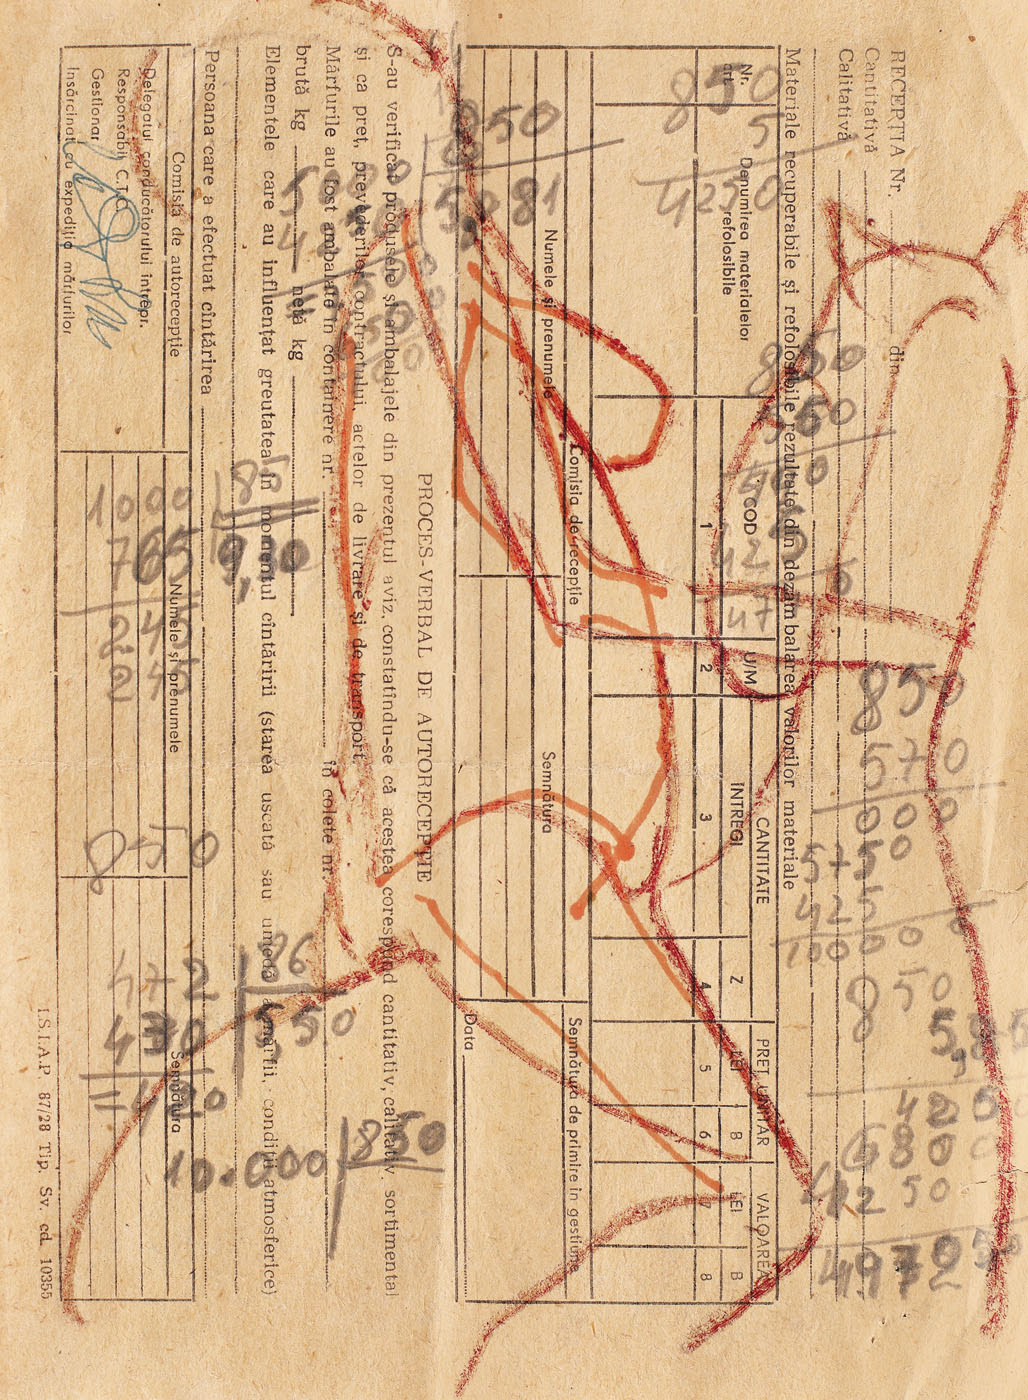 RECEPȚIA Nr. din
Cantitativă
Calitativă
Materiale recuperabile și refolosibile rezultate din dezambalarea valorilor materiale
Nr. crt.
Denumirea materialelor refolosibile
COD
U/M
CANTITATE
PREȚ UNITAR
VALOAREA
INTREGI
Z
LEI
B
LEI
B
1
2
3
4
5
6
7
8
Comisia de recepție
Semnătura de primire în gestiune
Numele și prenumele
Semnătura
Data
PROCES-VERBAL DE AUTORECEPȚIE
S-au verificat produsele și ambalajele din prezentul aviz, constatîndu-se că acestea corespund cantitativ, calitativ, sortimental
și ca preț, prevederilor contractului, actelor de livrare și de transport.
Mărfurile au fost ambalate în containere nr. în colete nr.
brută kg netă kg
Elementele care au influențat greutatea în momentul cîntăririi (starea uscată sau umedă a mărfii, condiții atmosferice)
Persoana care a efectuat cîntărirea
Comisia de autorecepție
Numele și prenumele
Semnătura
Delegatul conducătorului întrepr.
Responsabil C.T.C.
Gestionar
Însărcinat cu expediția mărfurilor
I.S.I.A.P. 87/28 Tip. Sv. cd. 10355
850
5
4250
850
5081
850
550
400
425
47
850
570
000
5750
425
100000
850
4250
680
4972
1000
765
245
245
85
850
472
470
10.000
850